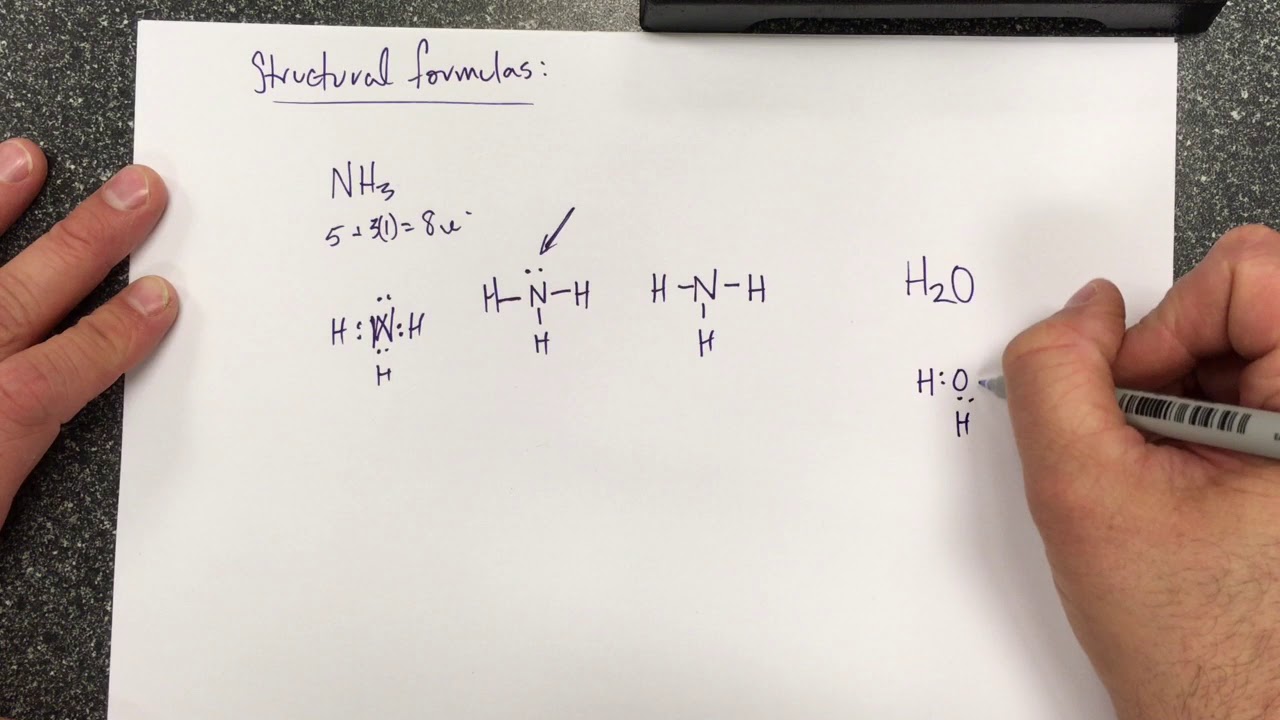 Structural formulas:
NH₃
5 + 3(1) = 8 e⁻
H : N : H
H
H – N – H
H
H – N – H
H
H₂O
H : O
H